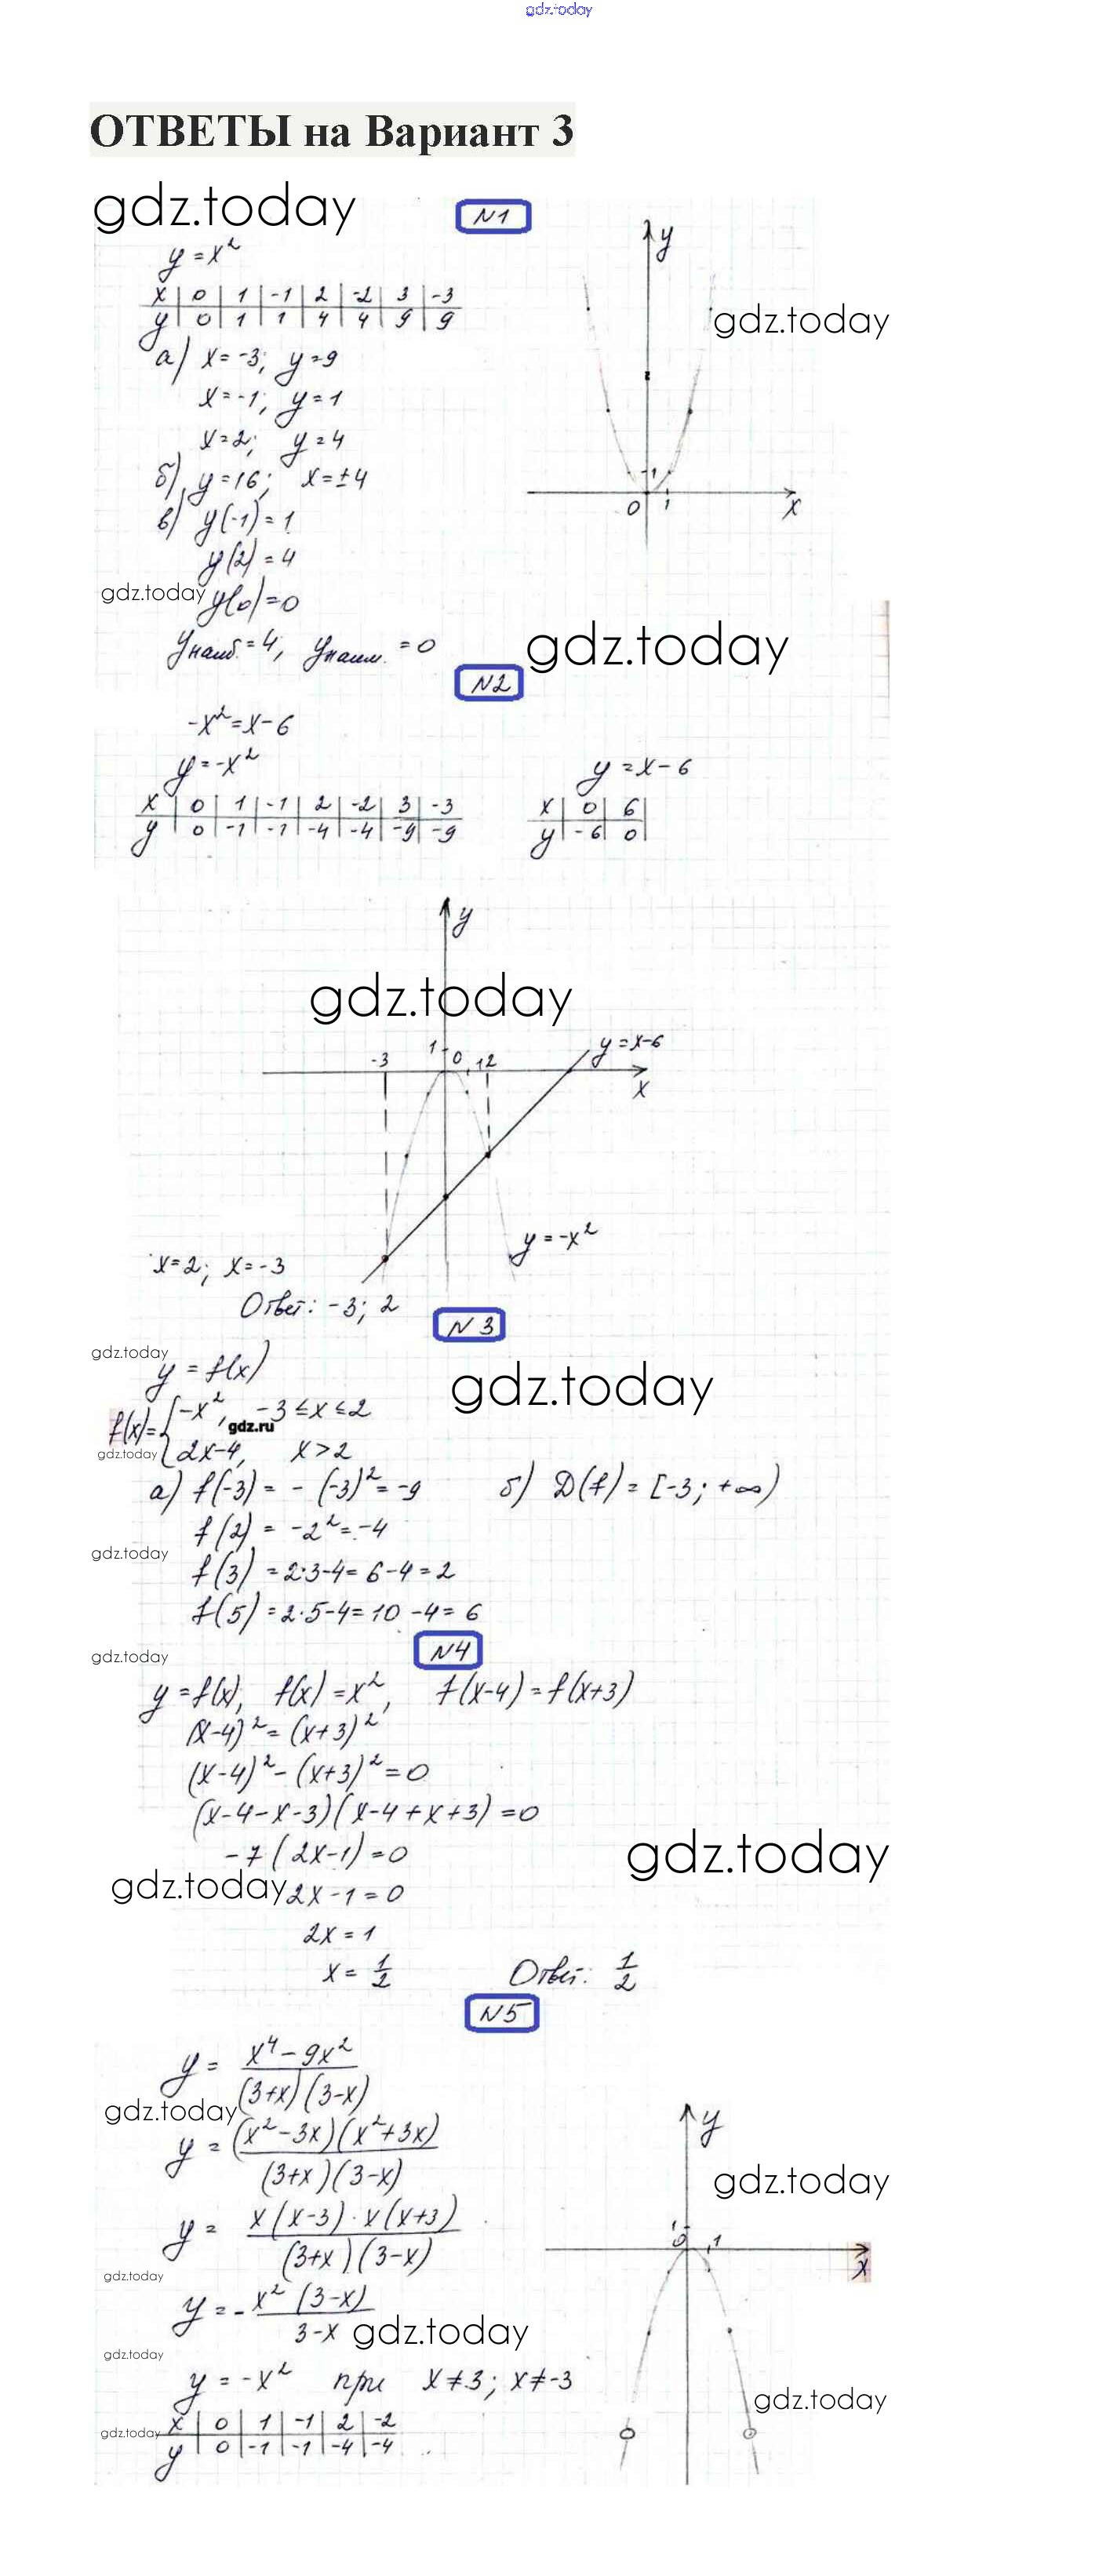 gdz.today
ОТВЕТЫ на Вариант 3
gdz.today
N1
y = x²
x | 0 | 1 | -1 | 2 | -2 | 3 | -3
y | 0 | 1 | 1 | 4 | 4 | 9 | 9
y
gdz.today
а) x = -3; y = 9
x = -1; y = 1
x = 2; y = 4
б) y = 16; x = ±4
1
0 1 x
в) y(-1) = 1
y(2) = 4
gdz.today y(0) = 0
yнаиб. = 4, yнаим. = 0
gdz.today
N2
-x² = x - 6
y = -x²
y = x - 6
x | 0 | 1 | -1 | 2 | -2 | 3 | -3
y | 0 | -1 | -1 | -4 | -4 | -9 | -9
x | 0 | 6
y | -6 | 0
y
gdz.today
y = x-6
-3 1 0 12
x
y = -x²
x = 2; x = -3
Ответ: -3; 2
N3
gdz.today
y = f(x)
gdz.today
f(x) = { -x², -3 ≤ x ≤ 2
gdz.ru
gdz.today
2x-4, x > 2
а) f(-3) = -(-3)² = -9 б) D(f) = [-3; +∞)
f(2) = -2² = -4
gdz.today
f(3) = 2·3-4 = 6-4 = 2
f(5) = 2·5-4 = 10-4 = 6
N4
gdz.today
y = f(x), f(x) = x², f(x-4) = f(x+3)
(x-4)² = (x+3)²
(x-4)² - (x+3)² = 0
(x-4-x-3)(x-4+x+3) = 0
-7(2x-1) = 0
gdz.today
gdz.today 2x-1 = 0
2x = 1
x = 1/2 Ответ: 1/2
N5
y = (x⁴ - 9x²)/((3+x)(3-x))
gdz.today
y = ((x²-3x)(x²+3x))/((3+x)(3-x))
y
gdz.today
y = (x(x-3)·x(x+3))/((3+x)(3-x))
1
0 1
x
gdz.today
y = -(x²(3-x))/(3-x)
gdz.today
gdz.today
y = -x² при x≠3; x≠-3
gdz.today
gdz.today
x | 0 | 1 | -1 | 2 | -2
y | 0 | -1 | -1 | -4 | -4